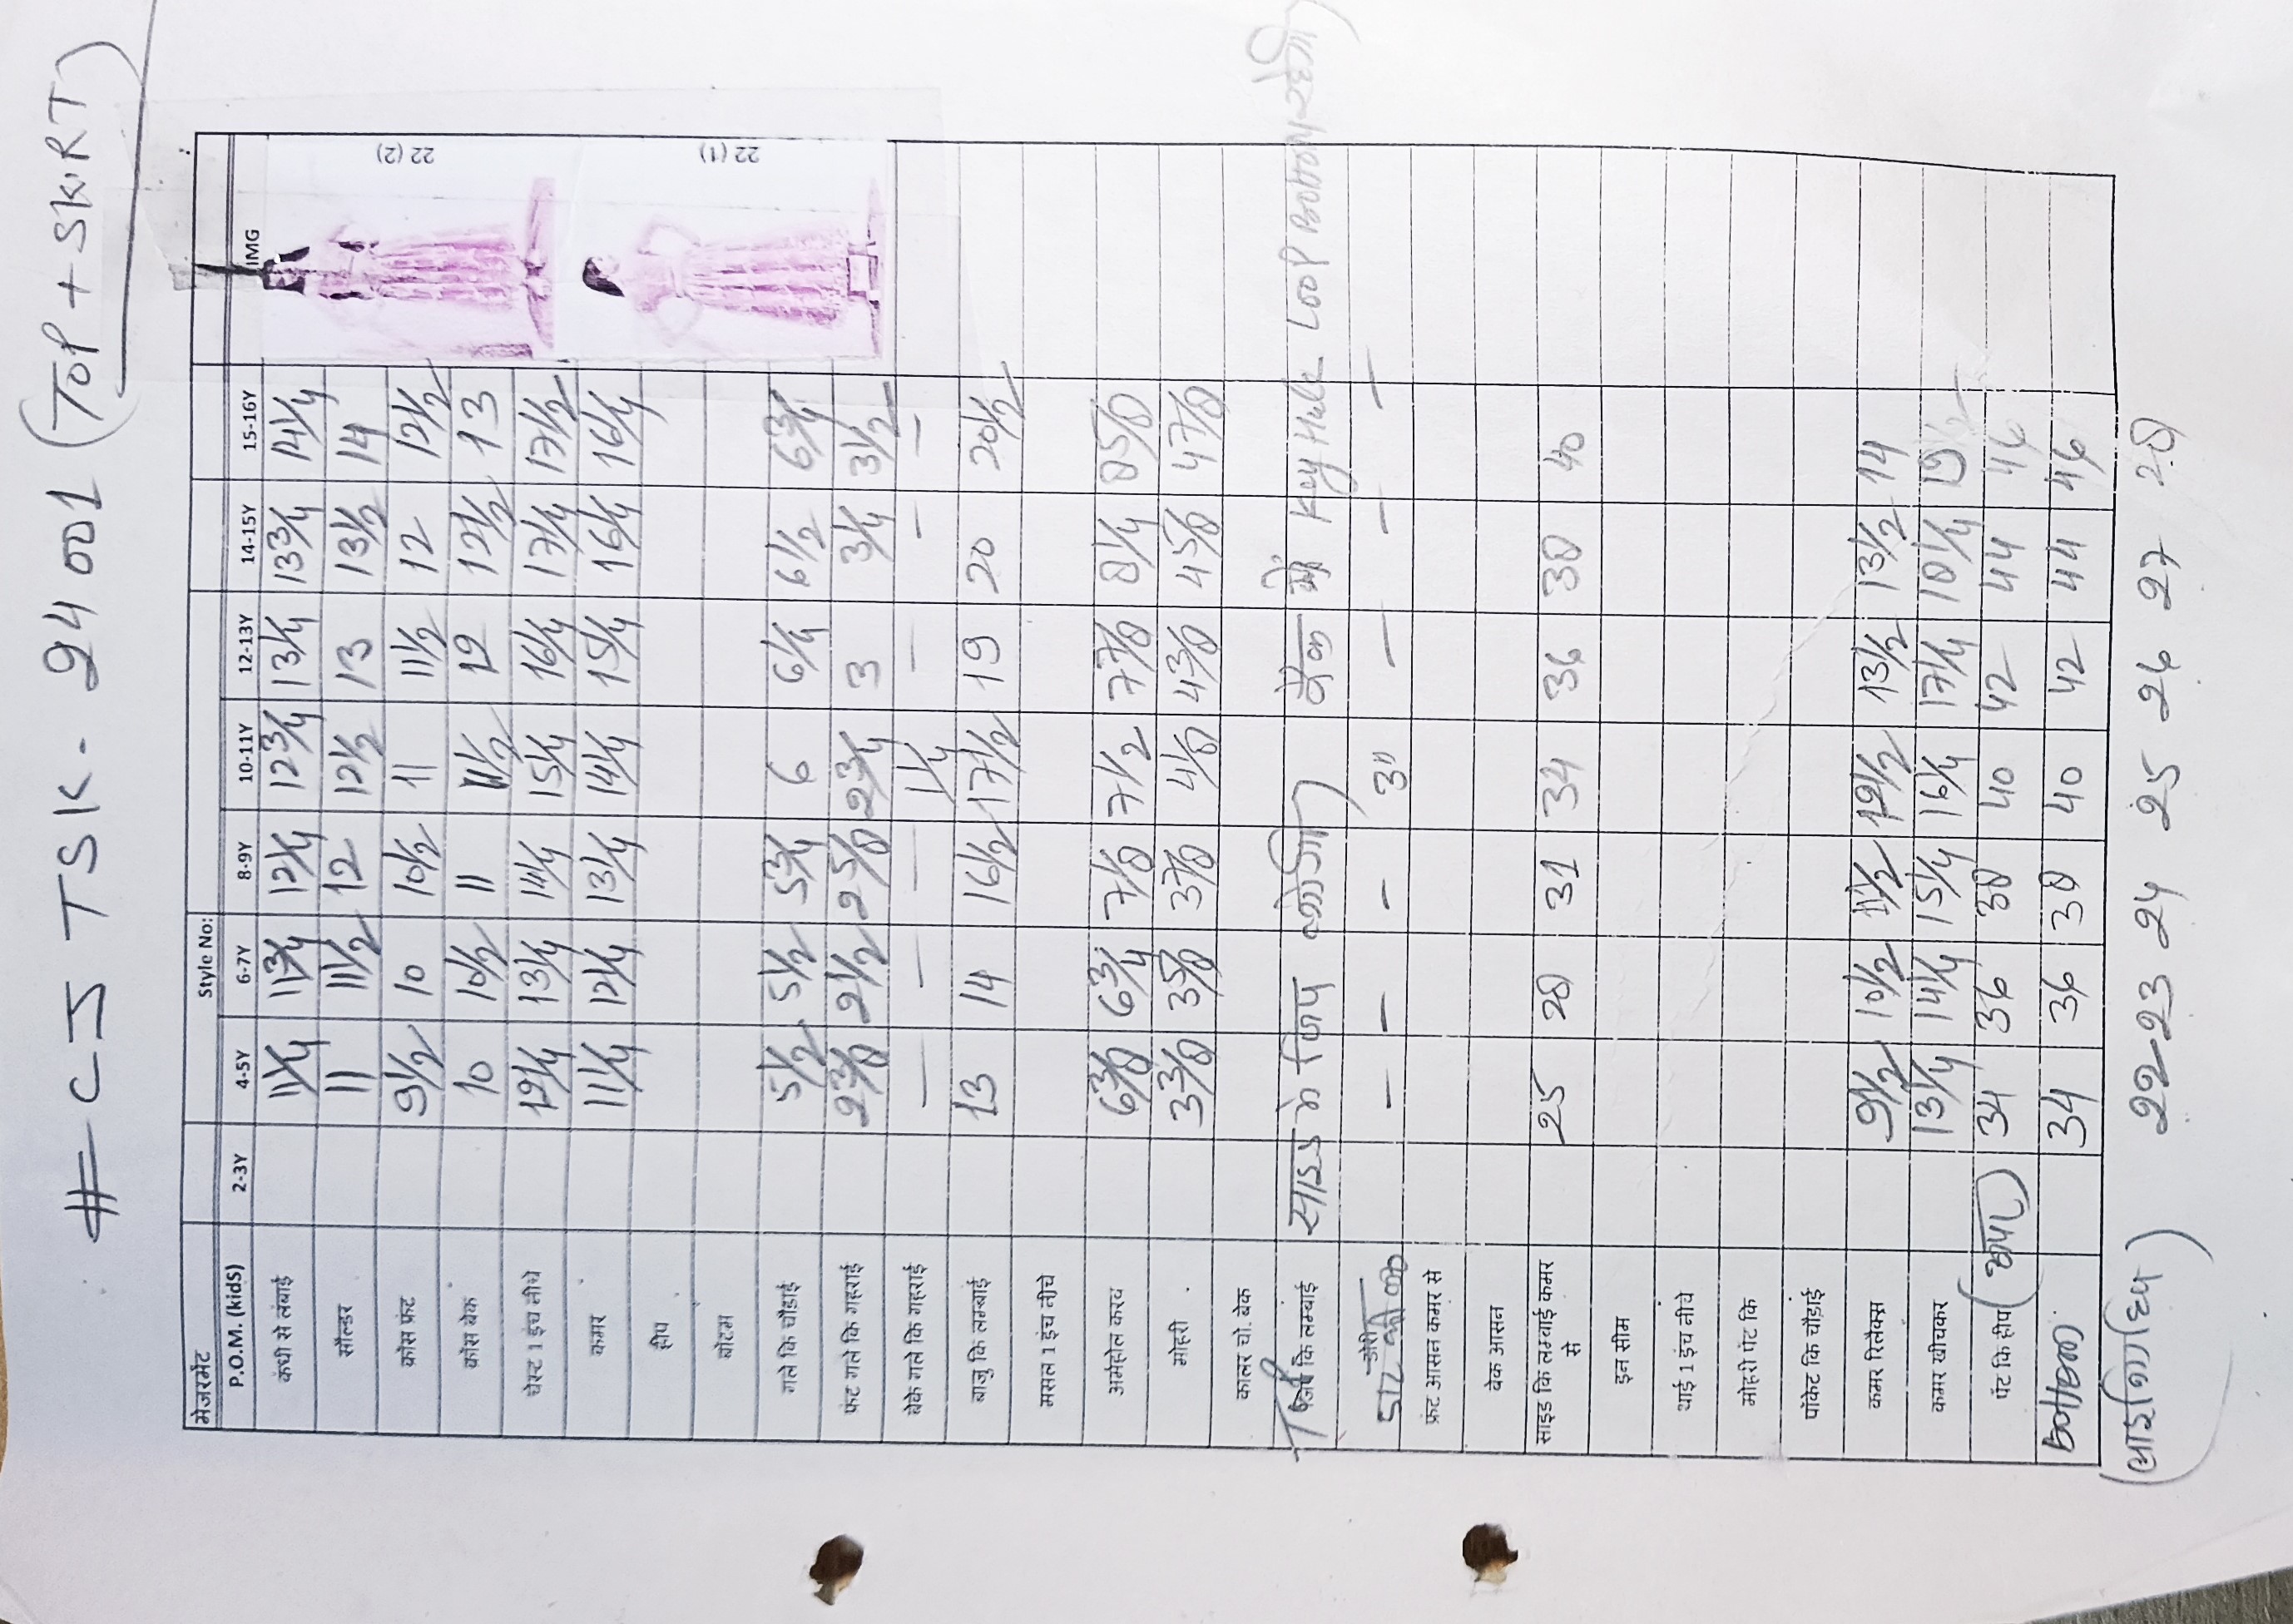 # CJ TSK- 24001 (TOP + SKIRT)
मेजरमेंट Style No:
P.O.M. (kidS) 2-3Y 4-5Y 6-7Y 8-9Y 10-11Y 12-13Y 14-15Y 15-16Y IMG
कंधी से लंबाई 11 1/4 11 3/4 12 1/4 12 3/4 13 1/4 13 3/4 14 1/4
सौल्डर 11 11 1/2 12 12 1/2 13 13 1/2 14
क्रोस फ्रंट 9 1/2 10 10 1/2 11 11 1/2 12 12 1/2
क्रोस बेक 10 10 1/2 11 11 1/2 12 12 1/2 13
चेस्ट 1 इंच नीचे 12 1/4 13 1/4 14 1/4 15 1/4 16 1/4 17 1/4 17 1/2
कमर 11 1/4 12 1/4 13 1/4 14 1/4 15 1/4 16 1/4 16 1/4
हीप
बॉटम
22 (2)
22 (1)
गले कि चौड़ाई 5 1/2 5 1/2 5 3/4 6 6 1/4 6 1/2 6 3/4
फंट गले कि गहराई 2 3/8 2 1/2 2 5/8 2 3/4 3 3 1/4 3 1/2
बेके गले कि गहराई — — — 1 1/4 — — —
बाजु कि लम्बाई 13 14 16 1/2 17 1/2 19 20 20 1/2
मसल 1 इंच नीचे
अर्महोल करव 6 3/8 6 3/4 7 1/8 7 1/2 7 7/8 8 1/4 8 5/8
मोहरी . 3 3/8 3 5/8 3 7/8 4 1/8 4 3/8 4 5/8 4 7/8
कालर चो. बेक
जिप कि लम्बाई साइड मे जिप लगेगी) बैक में Key Hole Loop Button रहेगी)
डोरी — — — 3" — — —
फ्रंट आसन कमर से
बेक आसन
साइड कि लम्बाई कमर से 25 28 31 34 36 38 40
इन सीम
थाई 1 इंच नीचे
मोहरी पंट कि
पॉकेट कि चौड़ाई
कमर रिलैक्स 9 1/2 10 1/2 11 1/2 12 1/2 13 1/2 13 1/2 14
कमर खीचकर 13 1/4 14 1/4 15 1/4 16 1/4 17 1/4 18 1/4
पंट कि हीप 34 36 38 40 42 44 46
34 36 38 40 42 44 46
22 23 24 25 26 27 28